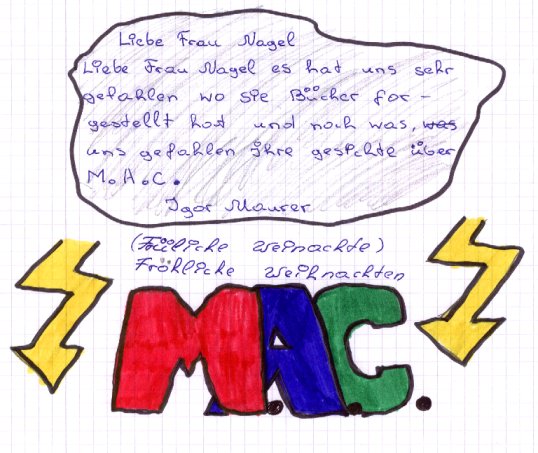 Liebe Frau Nagel
Liebe Frau Nagel es hat uns sehr
gefahlen wo sie Bücher for-
gestellt hast und noch was, was
uns gefahlen ihre gesichte über
M.A.C.
Igor Maurer
(Früliche Weinachte)
Fröhliche Weihnachten
M.A.C.